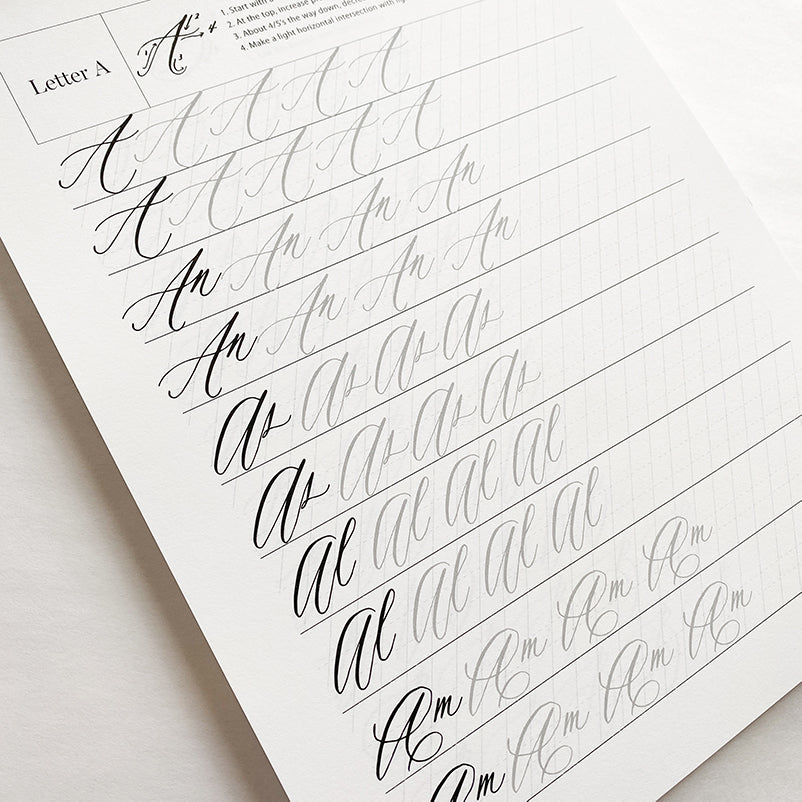 1. Start with
2. At the top, increase
3. About 4/5's the way down,
4. Make a light horizontal intersection with
Letter A
A 1 2 3 4
A A A A A
A A A A A
An An An An
An An An An
As As As As
As As As As
Al Al Al Al
Al Al Al Al
Am Am Am Am
Am Am Am Am